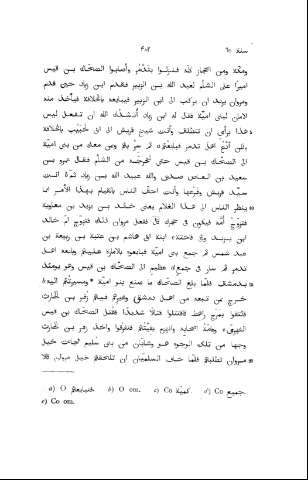 سنة ٦٠ ٤٠٢
ومكّة ومن الحجاز كله فنزلوا بتدمر وأصابوا الضحّاك بن قيس
اميرًا على الشأم لعبد الله بن الزبير فقدم ابن زياد حين قدم
ومروان يريد ان يركب الى ابن الزبير فيبايعه بالخلافة فيأخذ منه
الامان لبنى اميّة فقال له ابن زياد أنشدك الله ان تفعل ليس
هذا برأى ان تنطلق وأنت شيخ قريش الى ابى خبيب بالخلافة
ولكن ادْعُ اهل تدمر فبايعهم ثم سر بهم ومن معك من بنى اميّة
الى الضحّاك بن قيس حتى تخرجه من الشأم فقال عمرو بن
سعيد بن العاص صدق والله عبيد الله بن زياد ثمّ انت
سيّد قريش وفرعها وأنت احقّ الناس بالقيام بهذا الأمر انما
ينظر الناس الى هذا الغلام يعنى خالد بن يزيد بن معوية
فتزوّج أمّه فيكون فى حجرك قال ففعل مروان ذلك فتزوّج امّ خالد
ابن يزيد وهى فاختة ابنة ابى هاشم بن عتبة بن ربيعة بن
عبد شمس ثم جمع بنى امية فبايعوه بالامارة عليهم وبايعه اهل
تدمر ثم سار فى جمع عظيم الى الضحّاك بن قيس وهو يومئذ
بدمشق فلمّا بلغ الضحّاك ما صنع بنو امية ومسيرتهم اليه
خرج بمن تبعه من اهل دمشق وغيرهم فيهم زفر بن الحارث
فالتقوا بمرج راهط فاقتتلوا قتالًا شديدًا فقتل الضحّاك بن قيس
الفهرى وعامّة اصحابه وانهزم بقيّتهم فتفرّقوا واخذ زفر بن الحارث
وجهًا من تلك الوجوه هو وشابّان من بنى سليم فجاءت خيل
مروان تطلبهم فلمّا خاف السلميّان ان تلحقهم خيل مروان قالا
a) O فتبايعهم b) O om. c) Co كميّة d) Co جميع
e) Co om.